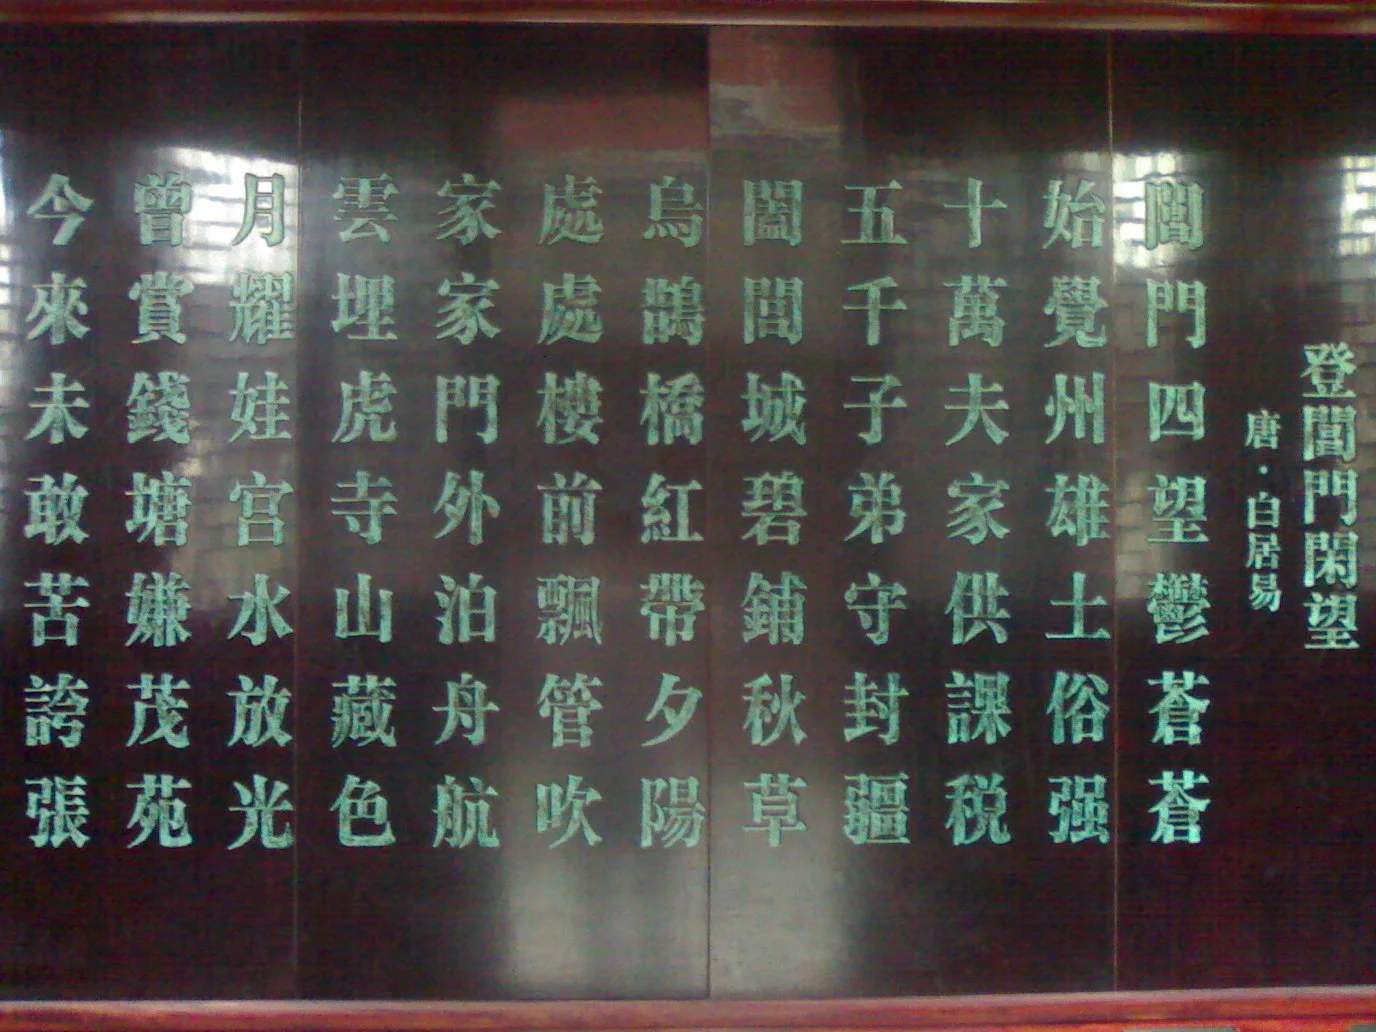 登閶門閑望
唐·白居易
閶門四望鬱蒼蒼
始覺州雄土俗强
十萬夫家供課税
五千子弟守封疆
闔閭城碧鋪秋草
烏鵲橋紅帶夕陽
處處樓前飄管吹
家家門外泊舟航
雲埋虎寺山藏色
月耀娃宫水放光
曾賞錢塘嫌茂苑
今來未敢苦誇張